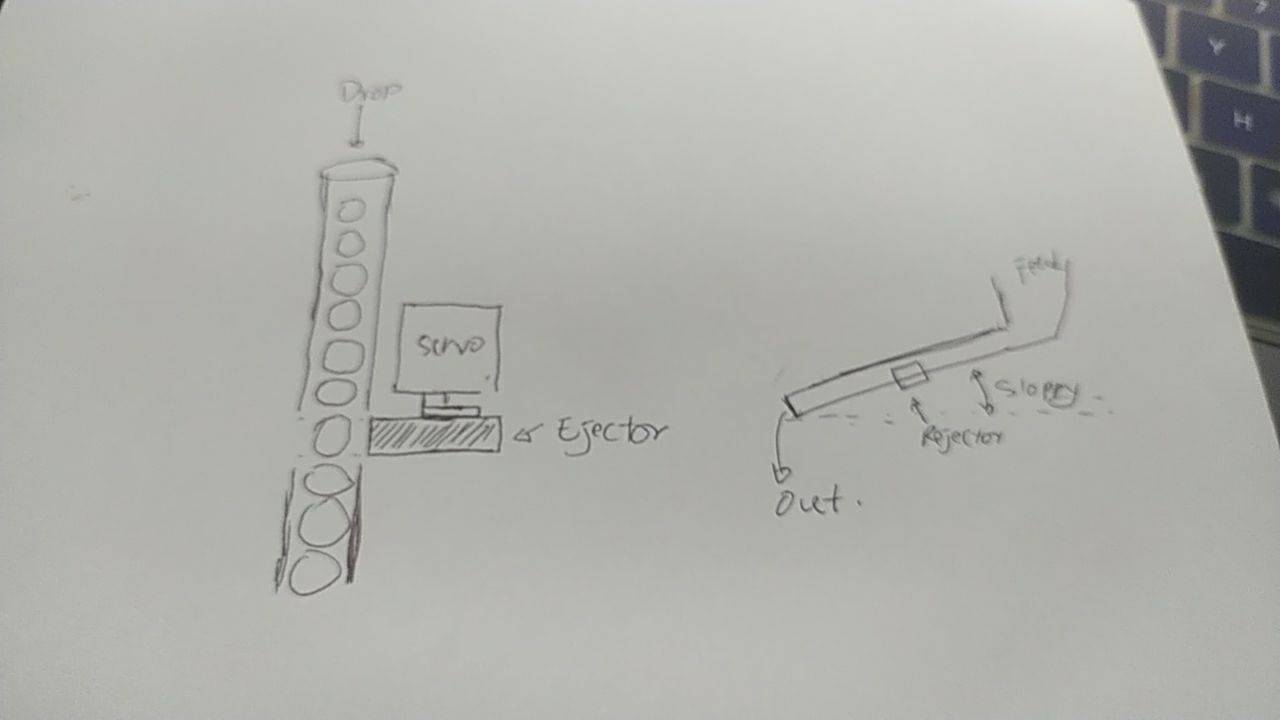 Drop
servo
Ejector
Feed
Sloppy
Rejector
Out.
Y
H